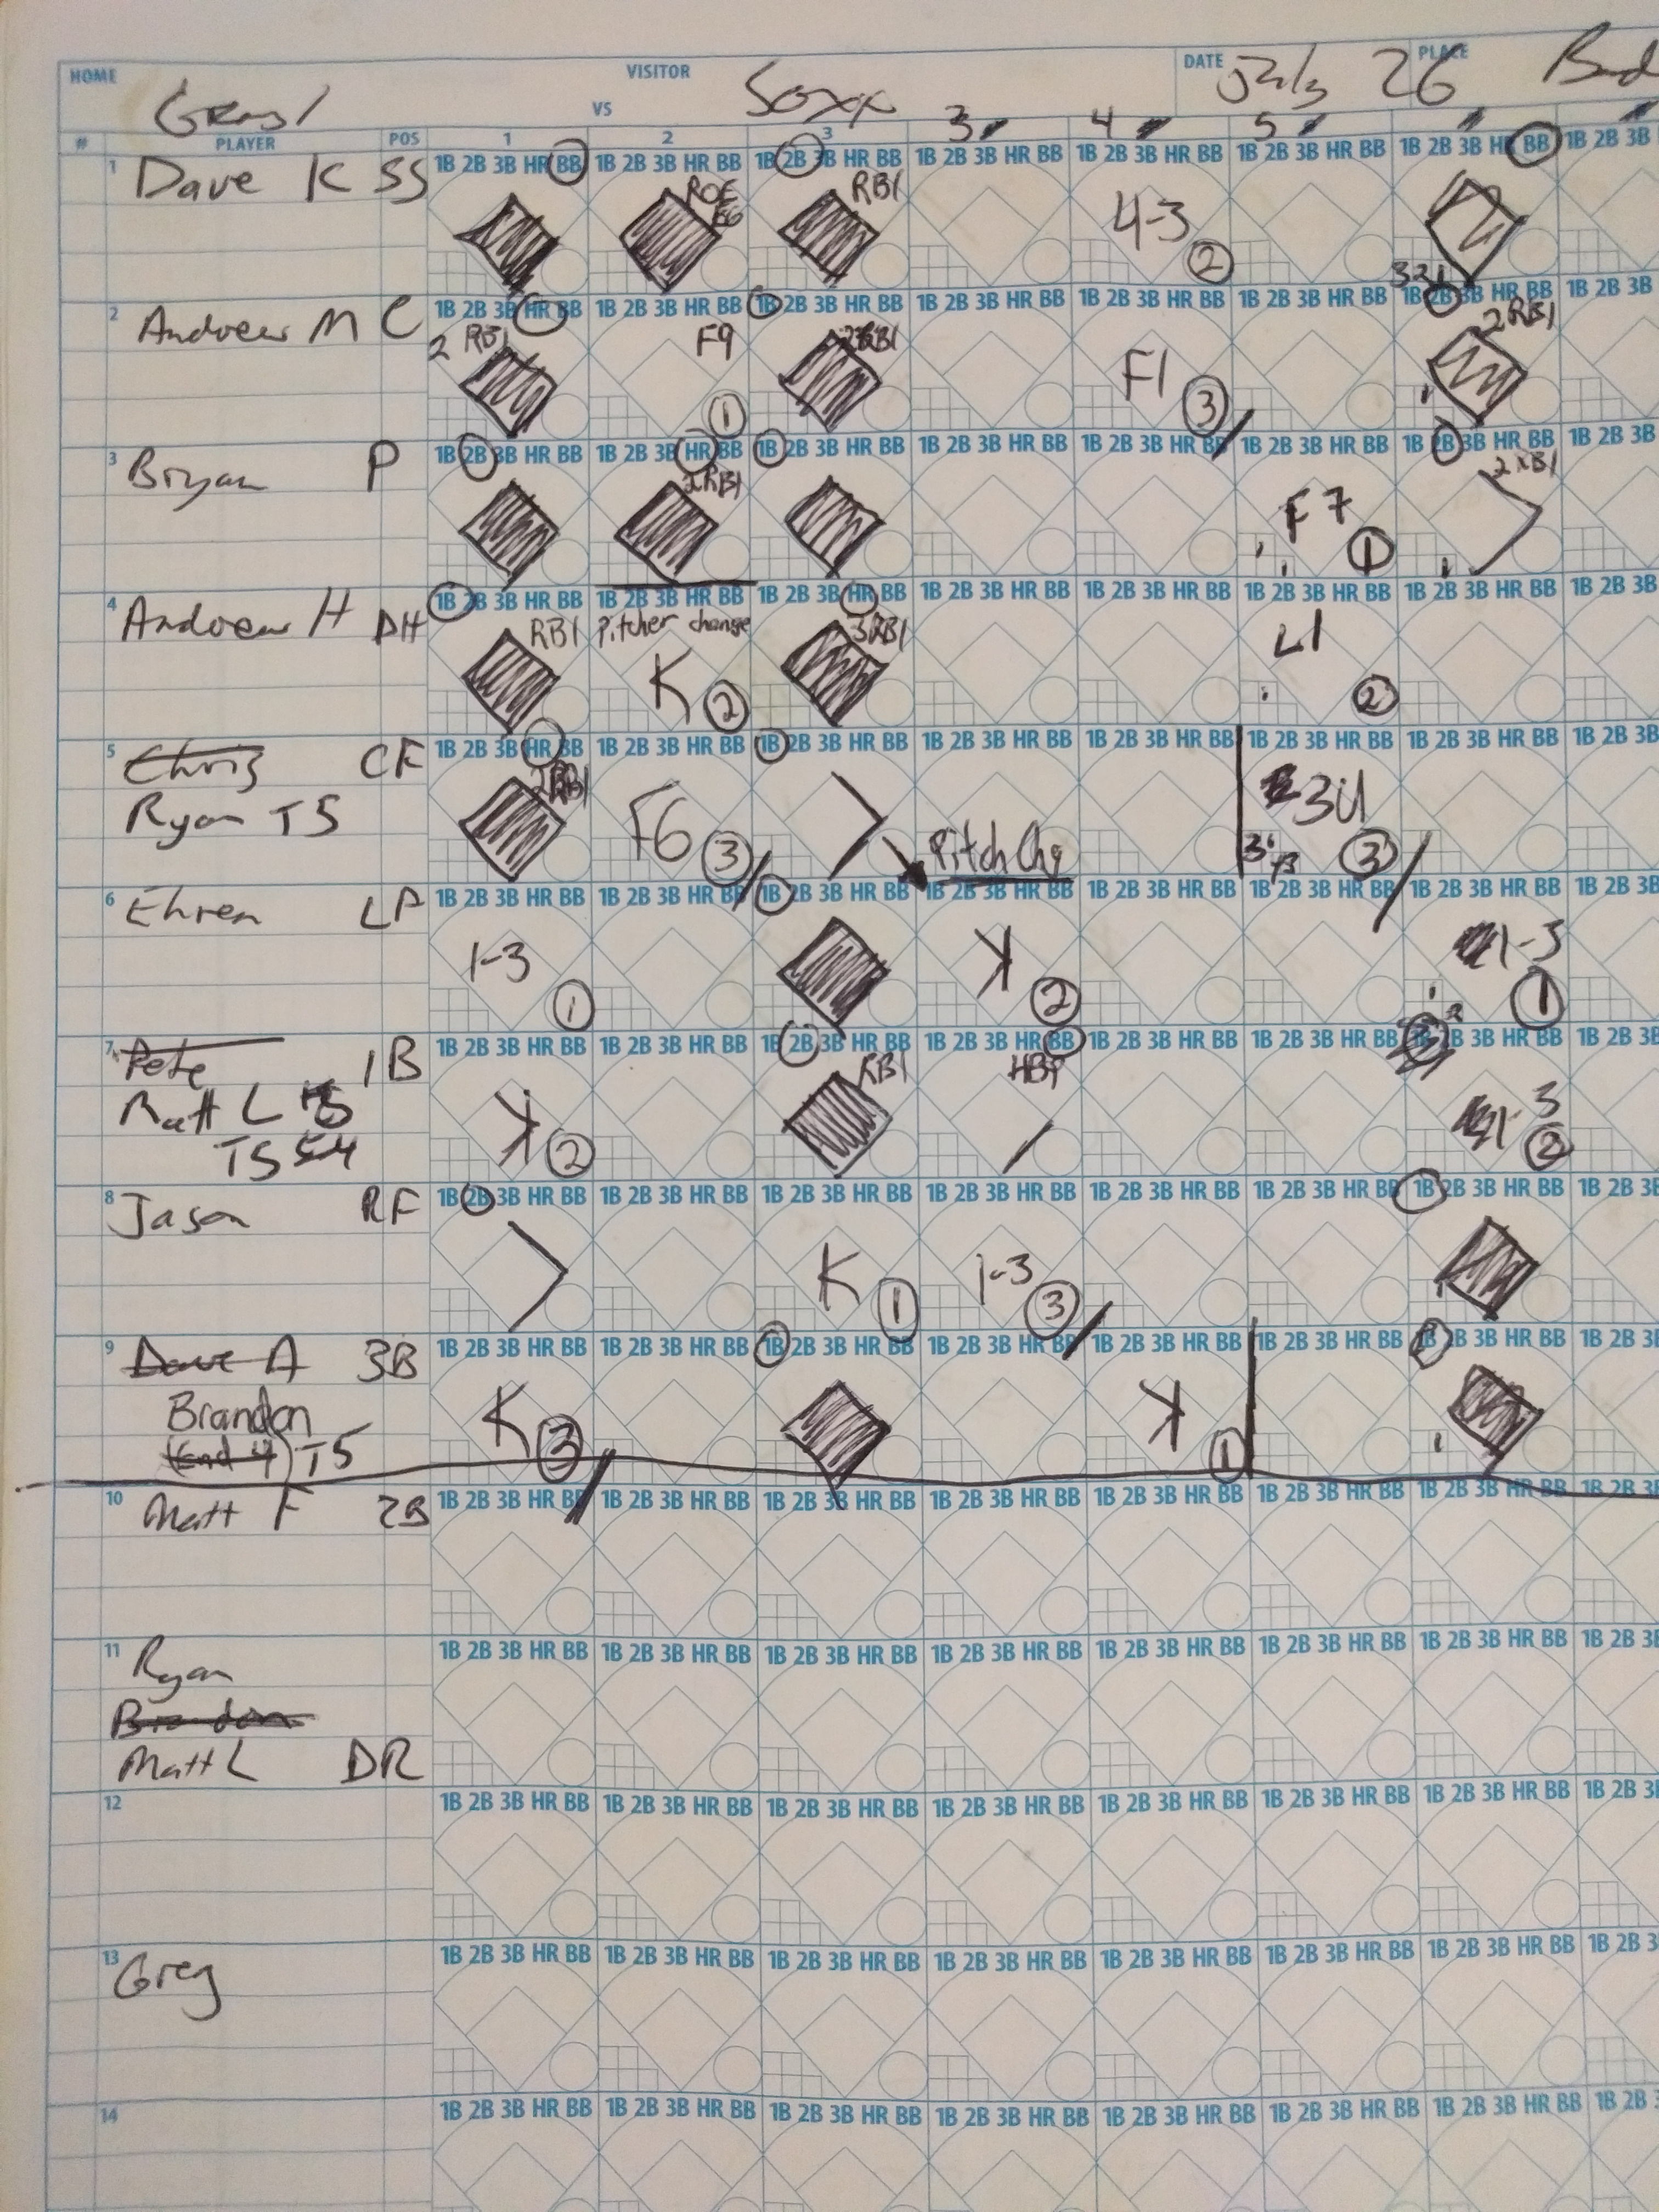 HOME VISITOR DATE July 26 PLACE
VS Soxx
3 4 5
# PLAYER POS 1 2 3
1 Dave K SS 1B 2B 3B HR BB 1B 2B 3B HR BB 1B 2B 3B HR BB 1B 2B 3B HR BB 1B 2B 3B HR BB 1B 2B 3B HR BB 1B 2B 3B HR BB 1B 2B 3B
ROE E6 RBI 4-3 2
2 Andrew M C 1B 2B 3B HR BB 1B 2B 3B HR BB 1B 2B 3B HR BB 1B 2B 3B HR BB 1B 2B 3B HR BB 1B 2B 3B HR BB 1B 2B 3B HR BB 1B 2B 3B
2 RBI F9 1 2RBI F1 3 2RBI
3 Bryan P 1B 2B 3B HR BB 1B 2B 3B HR BB 1B 2B 3B HR BB 1B 2B 3B HR BB 1B 2B 3B HR BB 1B 2B 3B HR BB 1B 2B 3B HR BB 1B 2B 3B
2RBI F7 1 2RBI
4 Andrew H DH 1B 2B 3B HR BB 1B 2B 3B HR BB 1B 2B 3B HR BB 1B 2B 3B HR BB 1B 2B 3B HR BB 1B 2B 3B HR BB 1B 2B 3B HR BB 1B 2B 3B
RBI Pitcher change K 2 3RBI L1 2
5 Chris CF 1B 2B 3B HR BB 1B 2B 3B HR BB 1B 2B 3B HR BB 1B 2B 3B HR BB 1B 2B 3B HR BB 1B 2B 3B HR BB 1B 2B 3B HR BB 1B 2B 3B
Ryan T5 2RBI F6 3 Pitch Chg 3U 3
6 Ehren LF 1B 2B 3B HR BB 1B 2B 3B HR BB 1B 2B 3B HR BB 1B 2B 3B HR BB 1B 2B 3B HR BB 1B 2B 3B HR BB 1B 2B 3B HR BB 1B 2B 3B
1-3 1 K 2 1-3 1
7 Pete 1B 1B 2B 3B HR BB 1B 2B 3B HR BB 1B 2B 3B HR BB 1B 2B 3B HR BB 1B 2B 3B HR BB 1B 2B 3B HR BB 1B 2B 3B HR BB 1B 2B 3B
Matt L K 2 RBI HBP 1-3 2
T5
8 Jason RF 1B 2B 3B HR BB 1B 2B 3B HR BB 1B 2B 3B HR BB 1B 2B 3B HR BB 1B 2B 3B HR BB 1B 2B 3B HR BB 1B 2B 3B HR BB 1B 2B 3B
K 1 1-3 3
9 Dave A 3B 1B 2B 3B HR BB 1B 2B 3B HR BB 1B 2B 3B HR BB 1B 2B 3B HR BB 1B 2B 3B HR BB 1B 2B 3B HR BB 1B 2B 3B HR BB 1B 2B 3B
Brandon K 3 K 1
(End 4) T5
10 Matt F 2B 1B 2B 3B HR BB 1B 2B 3B HR BB 1B 2B 3B HR BB 1B 2B 3B HR BB 1B 2B 3B HR BB 1B 2B 3B HR BB 1B 2B 3B HR BB 1B 2B 3B
11 Ryan 1B 2B 3B HR BB 1B 2B 3B HR BB 1B 2B 3B HR BB 1B 2B 3B HR BB 1B 2B 3B HR BB 1B 2B 3B HR BB 1B 2B 3B HR BB 1B 2B 3B
Brandon
Matt L DR
12 1B 2B 3B HR BB 1B 2B 3B HR BB 1B 2B 3B HR BB 1B 2B 3B HR BB 1B 2B 3B HR BB 1B 2B 3B HR BB 1B 2B 3B HR BB 1B 2B 3B
13 Greg 1B 2B 3B HR BB 1B 2B 3B HR BB 1B 2B 3B HR BB 1B 2B 3B HR BB 1B 2B 3B HR BB 1B 2B 3B HR BB 1B 2B 3B HR BB 1B 2B 3
14 1B 2B 3B HR BB 1B 2B 3B HR BB 1B 2B 3B HR BB 1B 2B 3B HR BB 1B 2B 3B HR BB 1B 2B 3B HR BB 1B 2B 3B HR BB 1B 2B 3